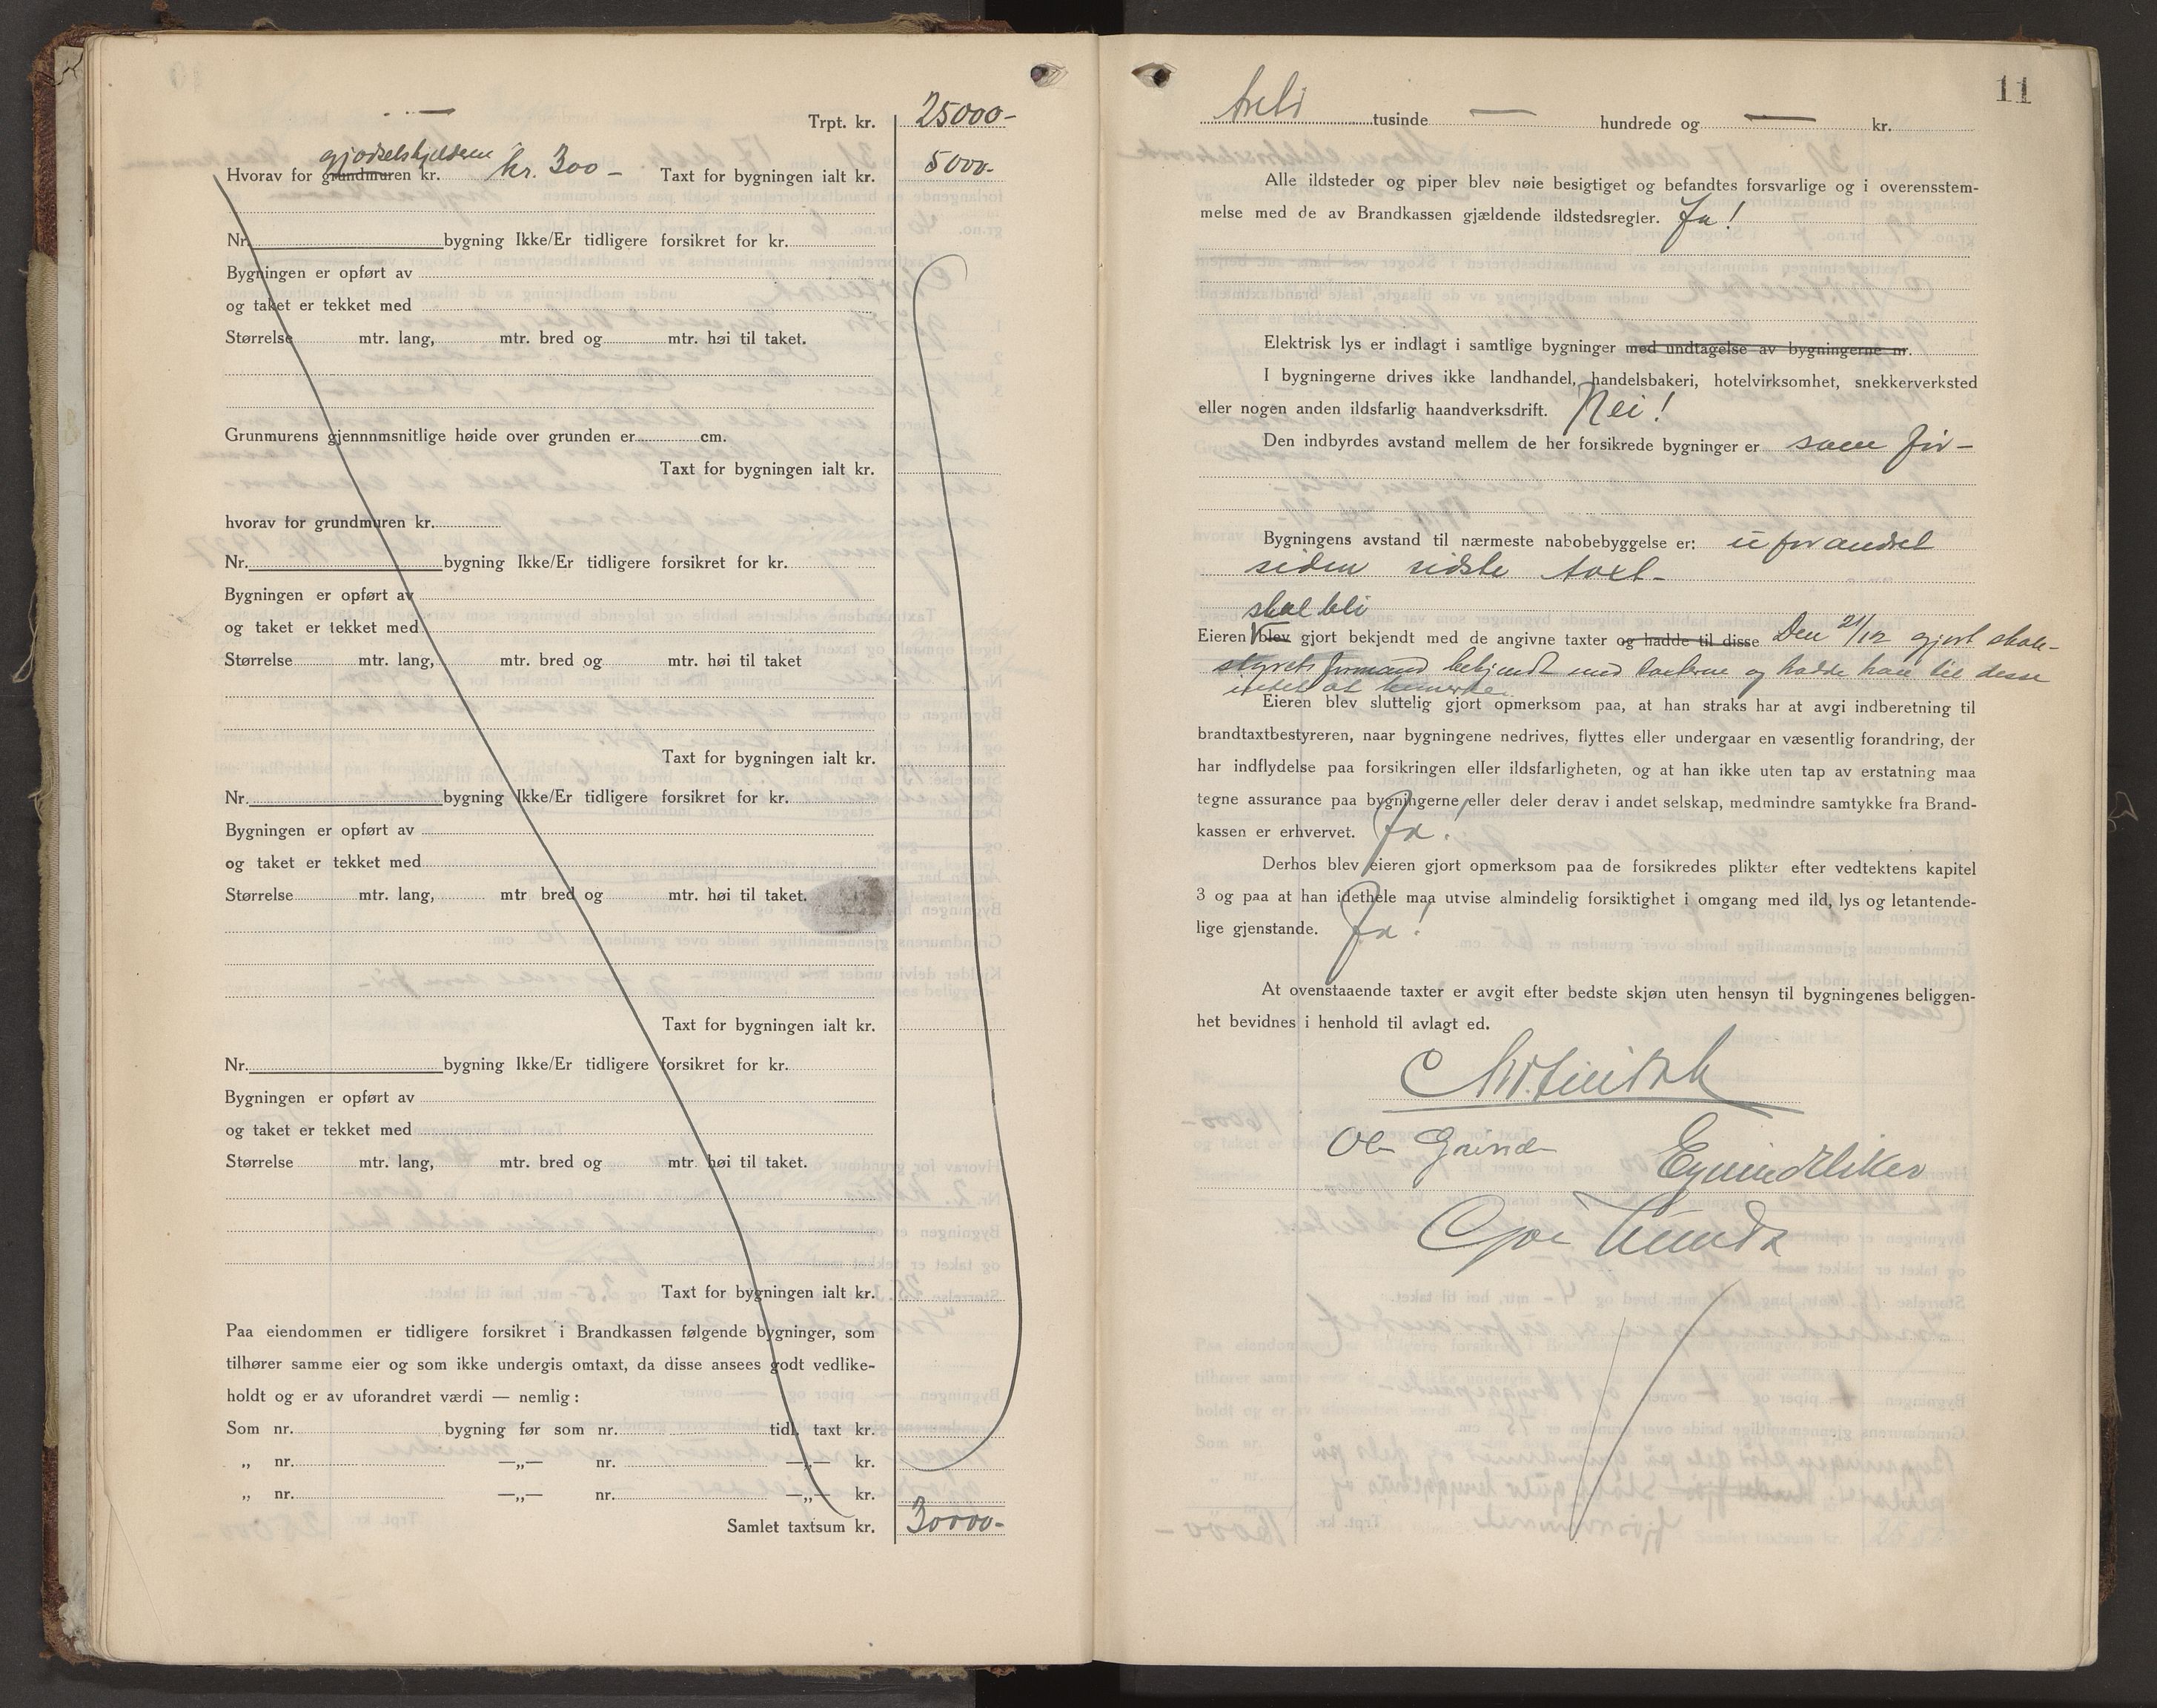 Trpt. kr. 25000-
gjødselskjelderen
Hvorav for grundmuren kr. kr. 300- Taxt for bygningen ialt kr. 5000-
Nr. bygning Ikke/Er tidligere forsikret for kr.
Bygningen er opført av
og taket er tekket med
Størrelse mtr. lang, mtr. bred og mtr. høi til taket.
Grunmurens gjennnmsnitlige høide over grunden er cm.
Taxt for bygningen ialt kr.
hvorav for grundmuren kr.
Nr. bygning Ikke/Er tidligere forsikret for kr.
Bygningen er opført av
og taket er tekket med
Størrelse mtr. lang, mtr. bred og mtr. høi til taket
Taxt for bygningen ialt kr.
Nr. bygning Ikke/Er tidligere forsikret for kr.
Bygningen er opført av
og taket er tekket med
Størrelse mtr. lang, mtr bred og mtr. høi til taket.
Taxt for bygningen ialt kr.
Nr. bygning Ikke/Er tidligere forsikret for kr.
Bygningen er opført av
og taket er tekket med
Størrelse mtr. lang, mtr. bred og mtr. høi til taket.
Taxt for bygningen ialt kr.
Paa eiendommen er tidligere forsikret i Brandkassen følgende bygninger, som
tilhører samme eier og som ikke undergis omtaxt, da disse ansees godt vedlike-
holdt og er av uforandret værdi — nemlig:
Som nr. bygning før som nr. tidl. taxt kr.
„ nr. —„— nr. —„— kr.
„ nr. —„— nr. —„— kr.
Samlet taxtsum kr. 30000-
11
Treti tusinde — hundrede og — kr.
Alle ildsteder og piper blev nøie besigtiget og befandtes forsvarlige og i overensstem-
melse med de av Brandkassen gjældende ildstedsregler. Ja!
Elektrisk lys er indlagt i samtlige bygninger med undtagelse av bygningerne nr.
I bygningerne drives ikke landhandel, handelsbakeri, hotelvirksomhet, snekkerverksted
eller nogen anden ildsfarlig haandverksdrift. Nei!
Den indbyrdes avstand mellem de her forsikrede bygninger er som før-
Bygningens avstand til nærmeste nabobebyggelse er: uforandret
siden sidste taxt-
skal bli
Eieren blev gjort bekjendt med de angivne taxter og hadde til disse Den 21/12 gjort skole-
styrets formand bekjendt med taxterne og hadde han til desse
intet at bemerke
Eieren blev sluttelig gjort opmerksom paa, at han straks har at avgi indberetning til
brandtaxtbestyreren, naar bygningene nedrives, flyttes eller undergaar en væsentlig forandring, der
har indflydelse paa forsikringen eller ildsfarligheten, og at han ikke uten tap av erstatning maa
tegne assurance paa bygningerne eller deler derav i andet selskap, medmindre samtykke fra Brand-
kassen er erhvervet. Ja!
Derhos blev eieren gjort opmerksom paa de forsikredes plikter efter vedtektens kapitel
3 og paa at han idethele maa utvise almindelig forsiktighet i omgang med ild, lys og letantende-
lige gjenstande. Ja!
At ovenstaaende taxter er avgit efter bedste skjøn uten hensyn til bygningenes beliggen-
het bevidnes i henhold til avlagt ed.